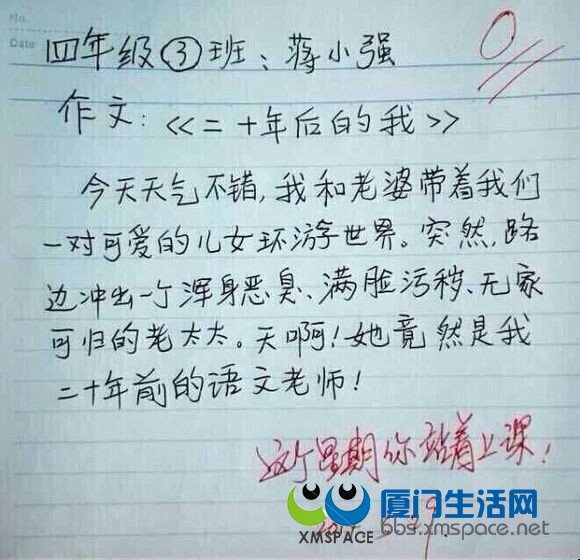 No.
Date
四年级③班：蒋小强
0
作文：《二十年后的我》
今天天气不错，我和老婆带着我们
一对可爱的儿女环游世界。突然，路
边冲出一个浑身恶臭、满脸污秽、无家
可归的老太太。天啊！她竟然是我
二十年前的语文老师！
这个星期你站着上课！
厦门生活网
XMSPACE
bbs.xmspace.net